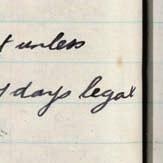 unless
days legal